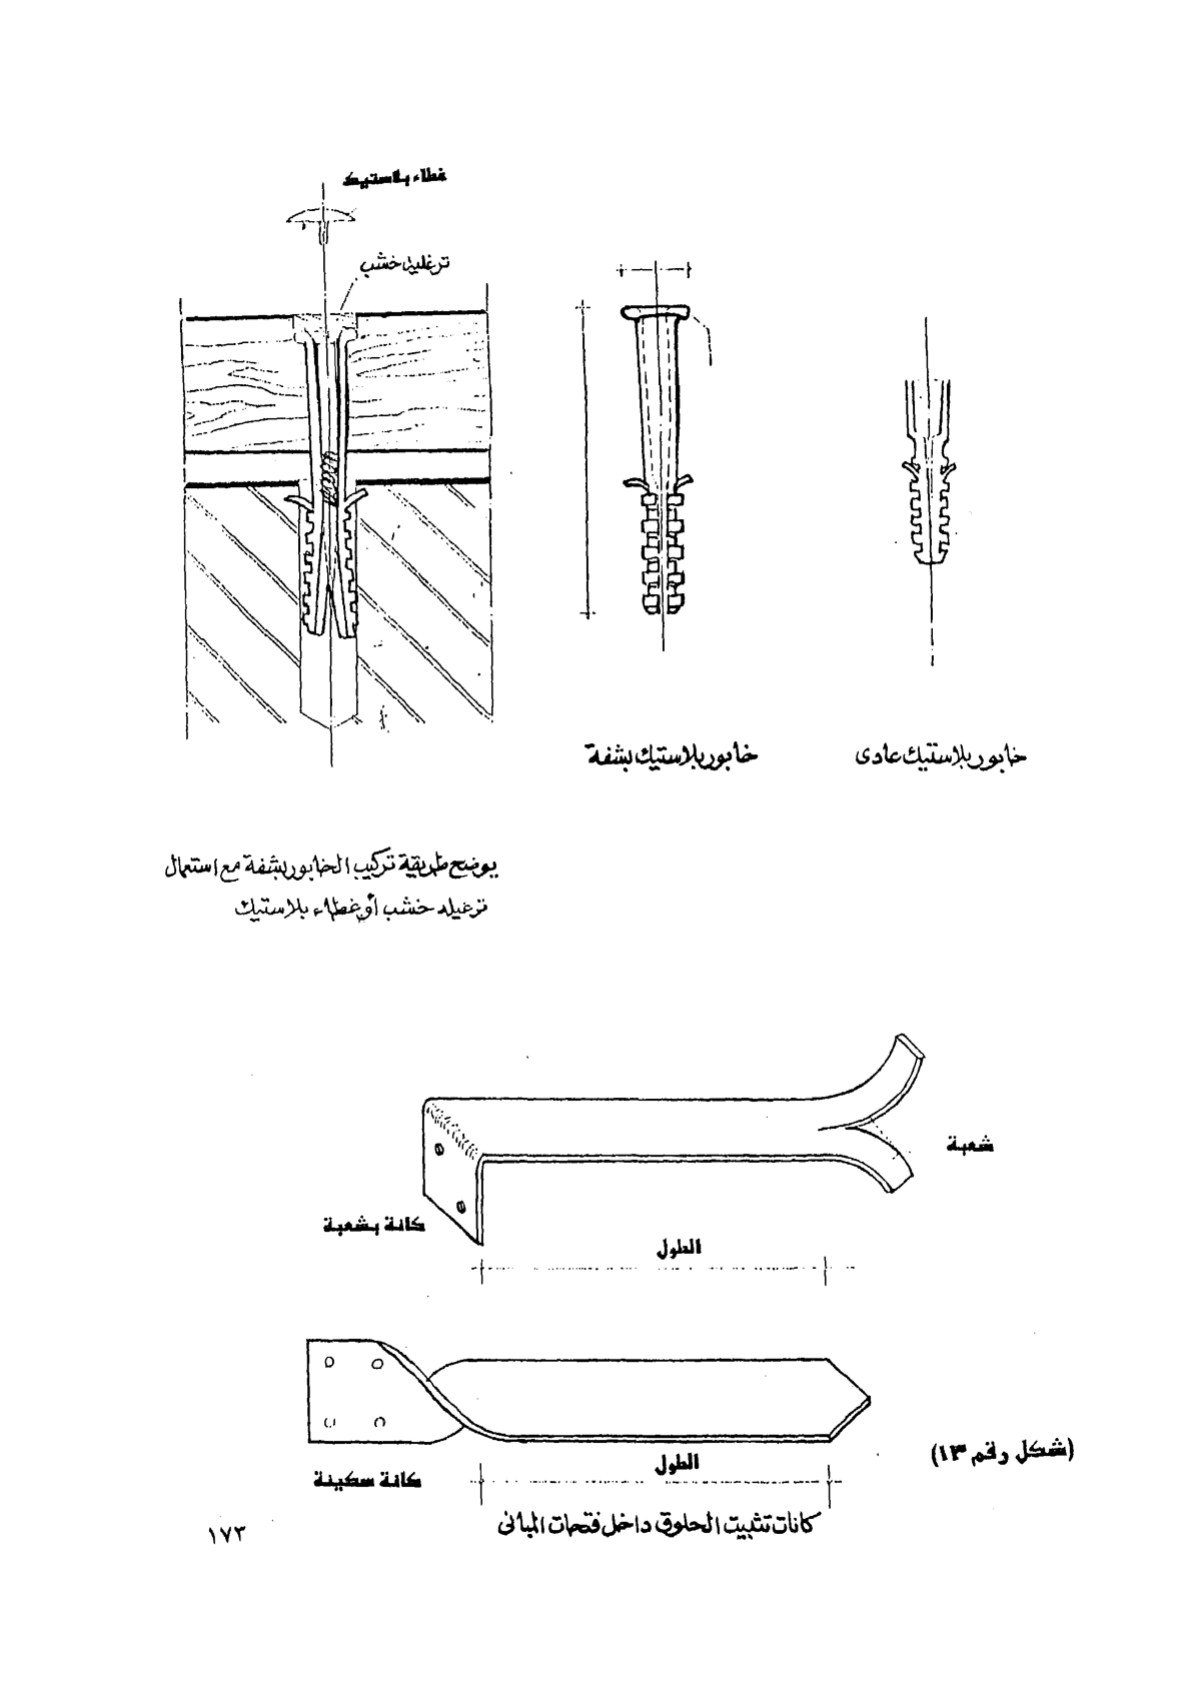 غطاء بلاستيك
ترغلية خشب
خابور بلاستيك عادى
خابور بلاستيك بشفة
يوضح طريقة تركيب الخابور بشفة مع استعمال
ترغيله خشب أو غطاء بلاستيك
شعبة
كانة بشعبة
الطول
(شكل رقم ١٣)
الطول
كانة سكينة
كانات تثبيت الحلوق داخل فتحات المبانى
١٧٣